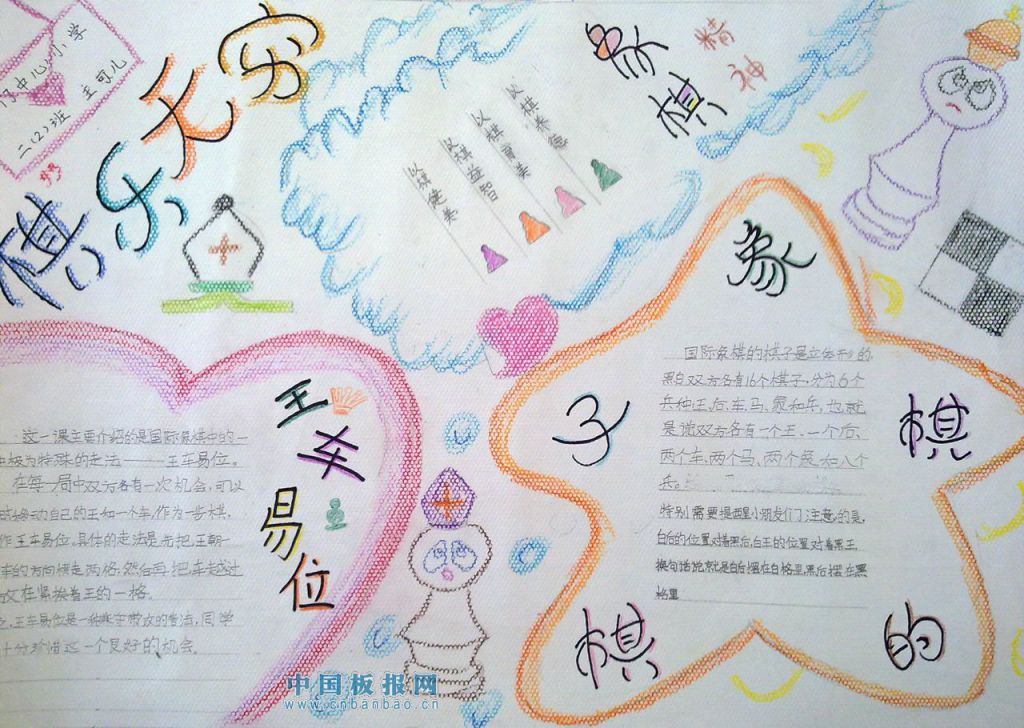 中心小学
王可儿
二(2)班
棋乐无穷
象棋
精神
以棋健美
以棋益智
以棋育美
以棋养德
王车易位
这一课主要介绍的是国际象棋中的一
极为特殊的走法———王车易位。
在每一局中双方各有一次机会,可以
移动自己的王和一个车,作为一步棋,
作王车易位。具体的走法是先把王朝
车的方向横走两格,然后再把车越过
放在紧挨着王的一格。
王车易位是一种
的走法,同学
十分珍惜这一个良好的机会。
象
棋
的
棋
子
国际象棋的棋子是立体形的
黑白双方各有16个棋子,分为6个
兵种王、后、车、马、象和兵,也就
是说双方各有一个王、一个后、
两个车、两个马、两个象和八个
兵。
特别需要提醒小朋友们注意的是,
白后的位置对着黑后,白王的位置对着黑王
换句话说就是白后摆在白格里黑后摆在黑
格里
中国板报网
www.cnbanbao.cn